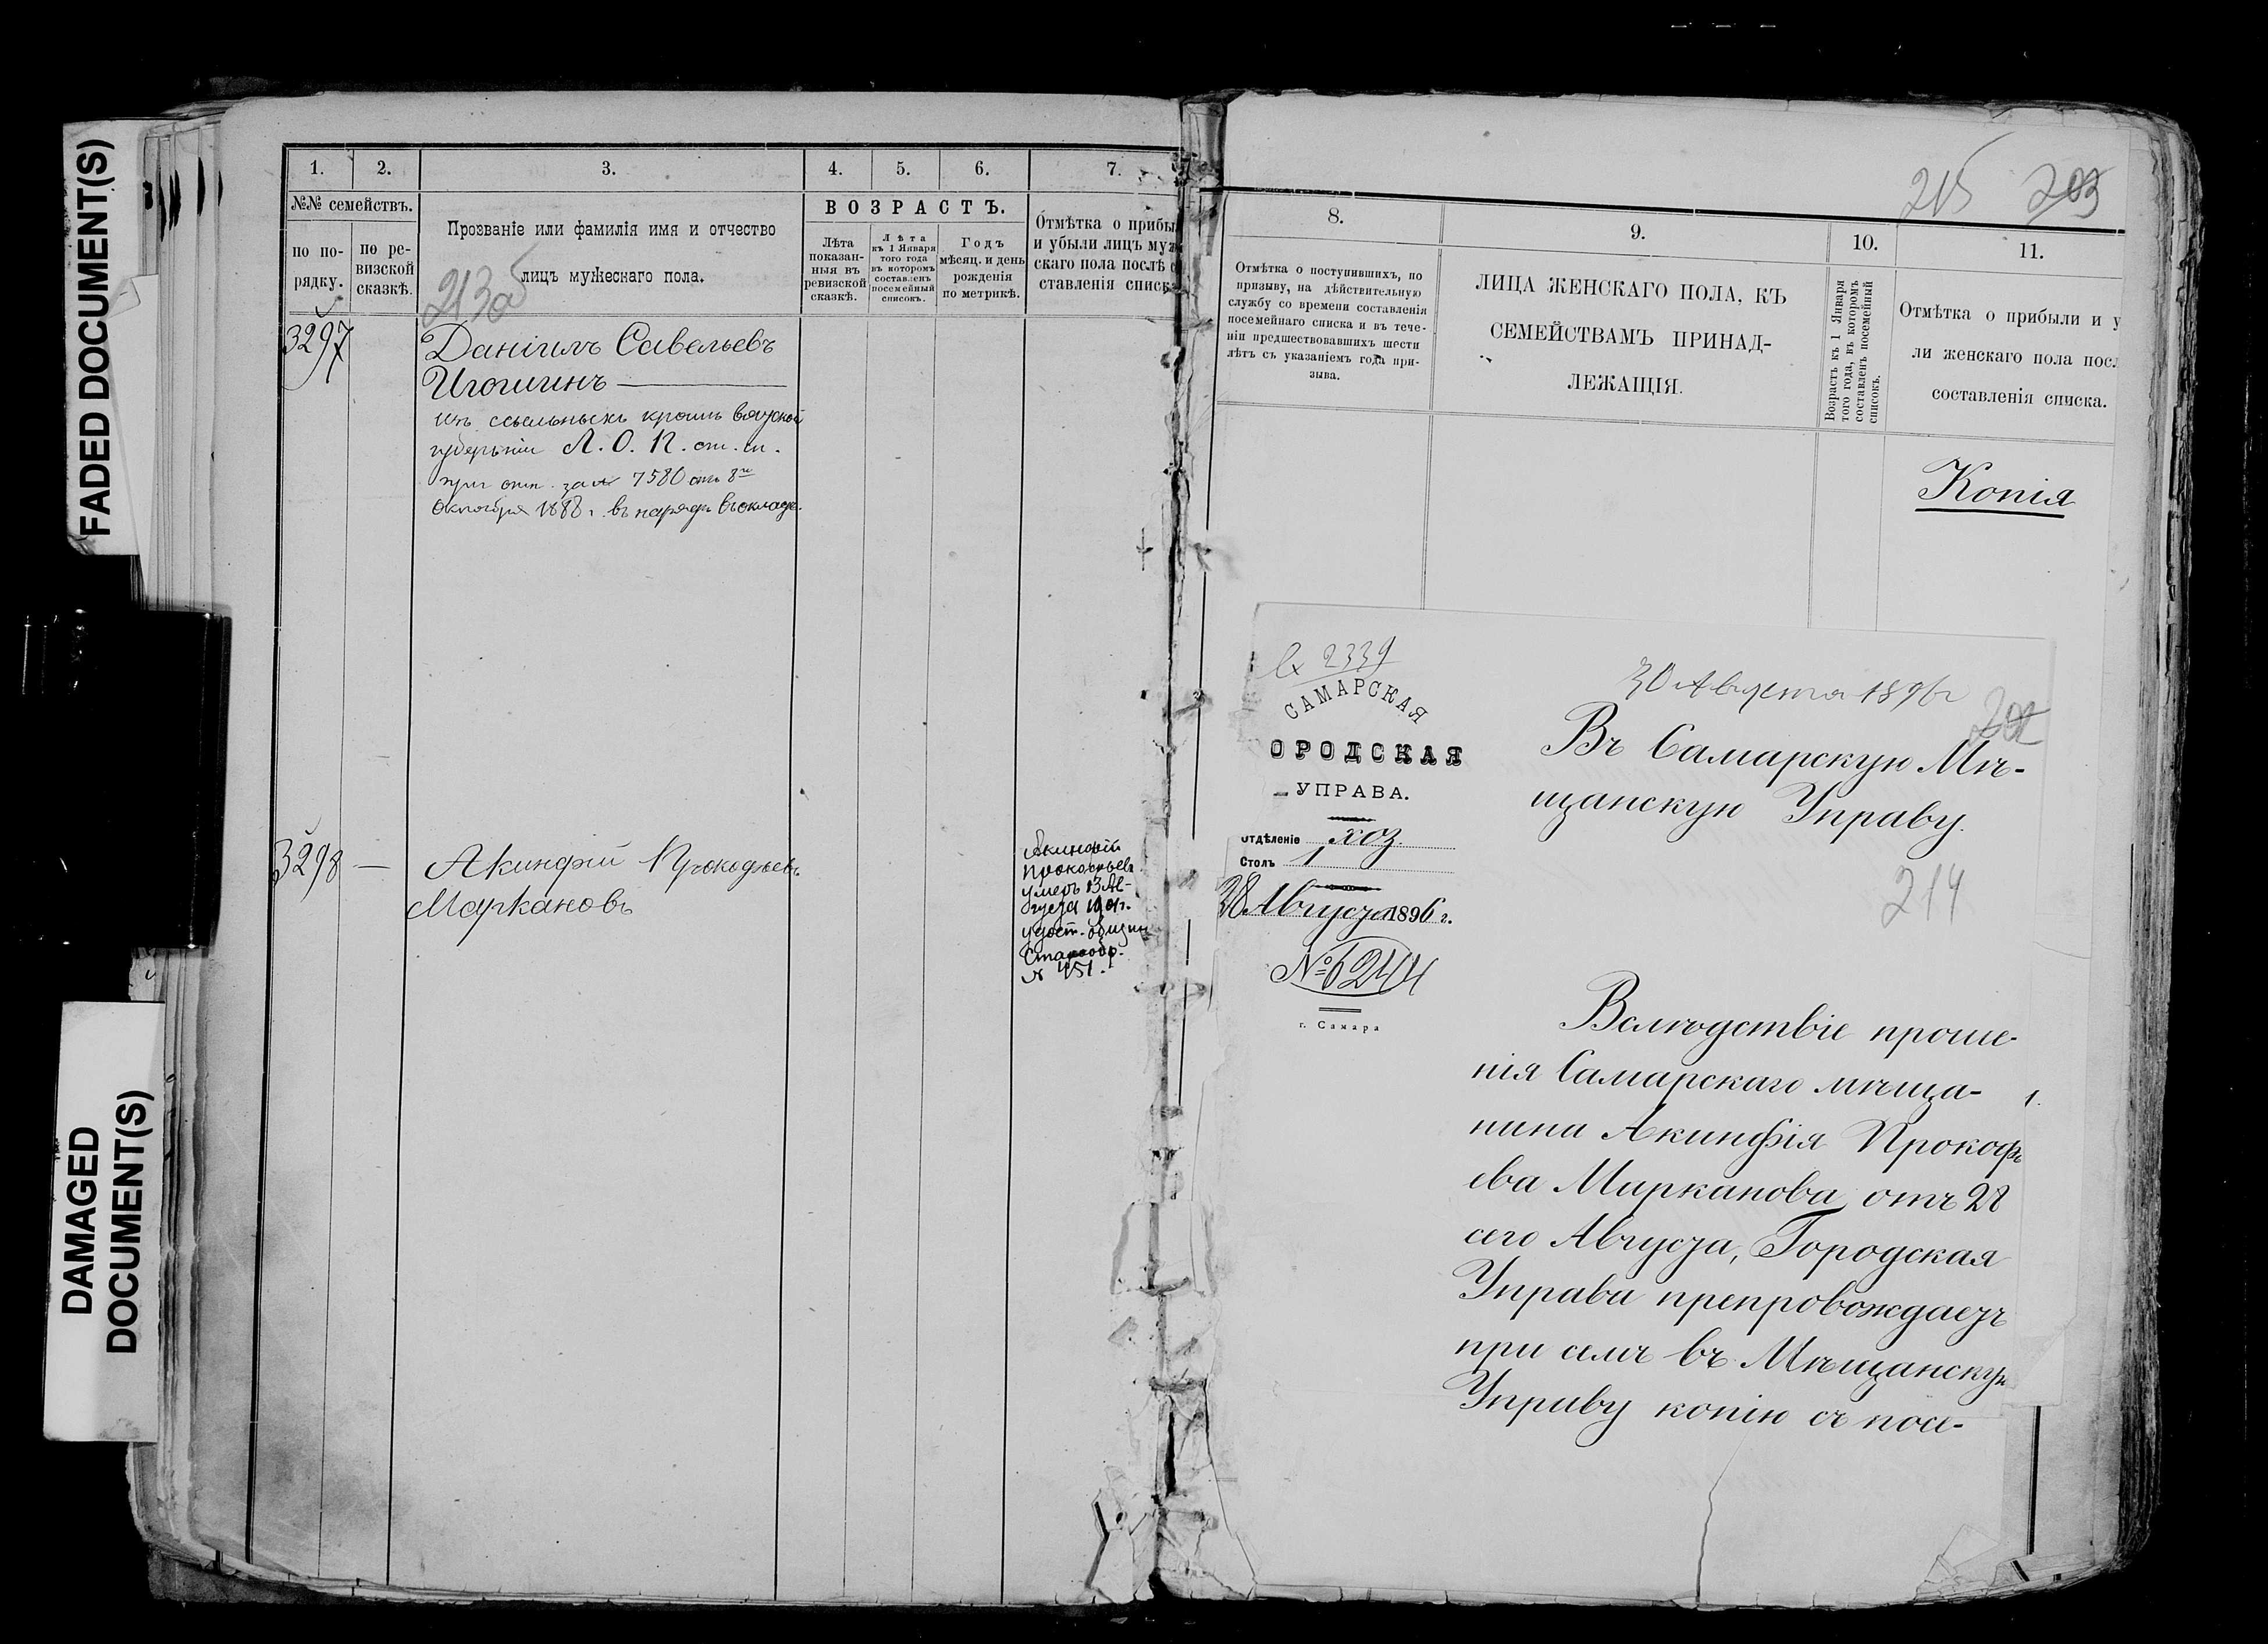 FADED DOCUMENT(S)
DAMAGED
DOCUMENT(S)
1.
2.
3.
4.
5.
6.
7.
№№ семействъ.
по по-
рядку.
по ре-
визской
сказкѣ.
Прозваніе или фамилія имя и отчество
лицъ мужескаго пола.
213об
ВОЗРАСТЪ.
Лѣта
показан-
ныя въ
ревизской
сказкѣ.
Лѣта
къ 1 Января
того года
въ которомъ
составленъ
посемейный
списокъ.
Годъ
мѣсяц. и день
рожденія
по метрикѣ.
Отмѣтка о прибы
и убыли лицъ муж
скаго пола послѣ с
ставленія списк
3297
Даніилъ Савельевъ
Игошинъ
изъ ссыльныхъ крома Вятской
губерніи Л. О. П. от. ст.
при отн. за № 7580 отъ 8го
октября 1888 г. въ нарядъ въ окладъ.
3298 —
Акинфій Прокофьевъ
Маркановъ
Акинфій
Прокофьевъ
умеръ 13 Ав-
густа 1901 г.
удост. общин
Старообр.
№ 451.
215 203
8.
9.
10.
11.
Отмѣтка о поступившихъ, по
призыву, на дѣйствительную
службу со времени составленія
посемейнаго списка и въ тече-
ніи предшествовавшихъ шести
лѣтъ съ указаніемъ года при-
зыва.
ЛИЦА ЖЕНСКАГО ПОЛА, КЪ
СЕМЕЙСТВАМЪ ПРИНАД-
ЛЕЖАЩІЯ.
Возрастъ къ 1 Января
того года, въ которомъ
составленъ посемейный
списокъ.
Отмѣтка о прибыли и у
ли женскаго пола посл
составленія списка.
Копія
Вх 2339
САМАРСКАЯ
ОРОДСКАЯ
УПРАВА.
Отдѣленіе хоз.
Столъ 1
28 Августа 1896 г.
№ 6244
г. Самара
30 Августа 1896 г
202
Въ Самарскую Мѣ-
щанскую Управу.
214
Вслѣдствіе проше-
нія Самарскаго мѣща-
нина Акинфія Прокофь
ева Мирканова отъ 28
сего Августа, Городская
Управа препровождаетъ
при семъ въ Мѣщанскую
Управу копію съ посе-
1.